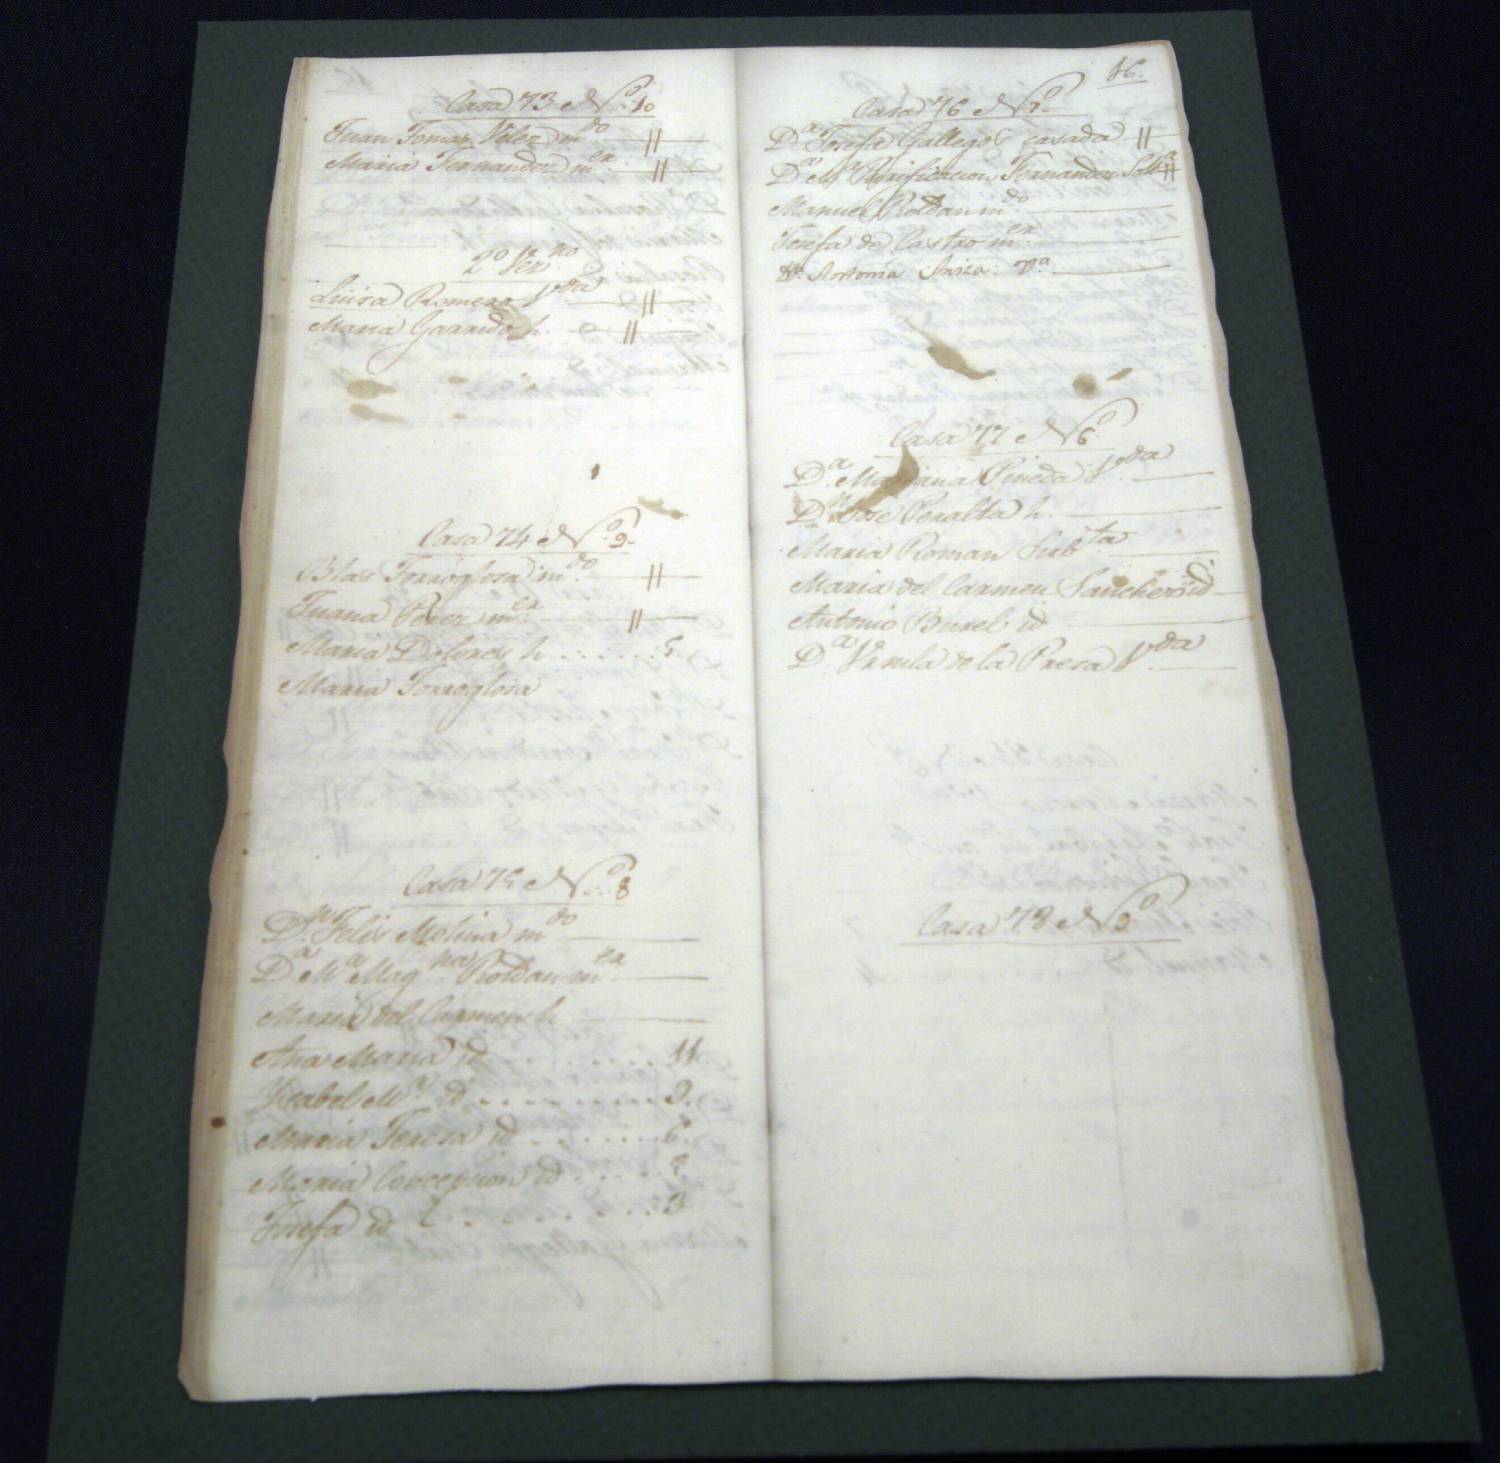 Casa 73 N.º 10
Juan Tomas Velez m.do
Maria Fernandez m.er
2º Vez.no
Luisa Romera V.da
Maria Garrido h.
Casa 74 N.º 9.
Blas Torroglosa m.do
Juana Perez m.er
Maria Dolores h. . . . . . 5.
Maria Torroglosa
Casa 75 N.º 8
D.n Felix Molina m.do
D.a M.a Mag.na Roldan m.er
Maria del Carmen h.
Ana Maria id . . . . . . . 11.
Ysabel M.a id . . . . . . . 9.
Maria Teresa id . . . . . . 6.
Maria Concepcion id . . . . .
Josefa id . . . . . . 3
16.
Casa 76 N.º 7.
D.a Josefa Gallegos casada
D.a M.a Purificacion Fernandez Solt.a
Manuel Roldan m.do
Josefa de Castro m.er
D.a Antonia V.a
Casa 77 N.º 6.
D.a Mariana Pineda V.da
D.n José Peralta h.
Maria Roman Sirb.ta
Maria del Carmen Sanchez id
Antonio Burel id
D.a Ursula de la Presa V.da
Casa 78 N.º